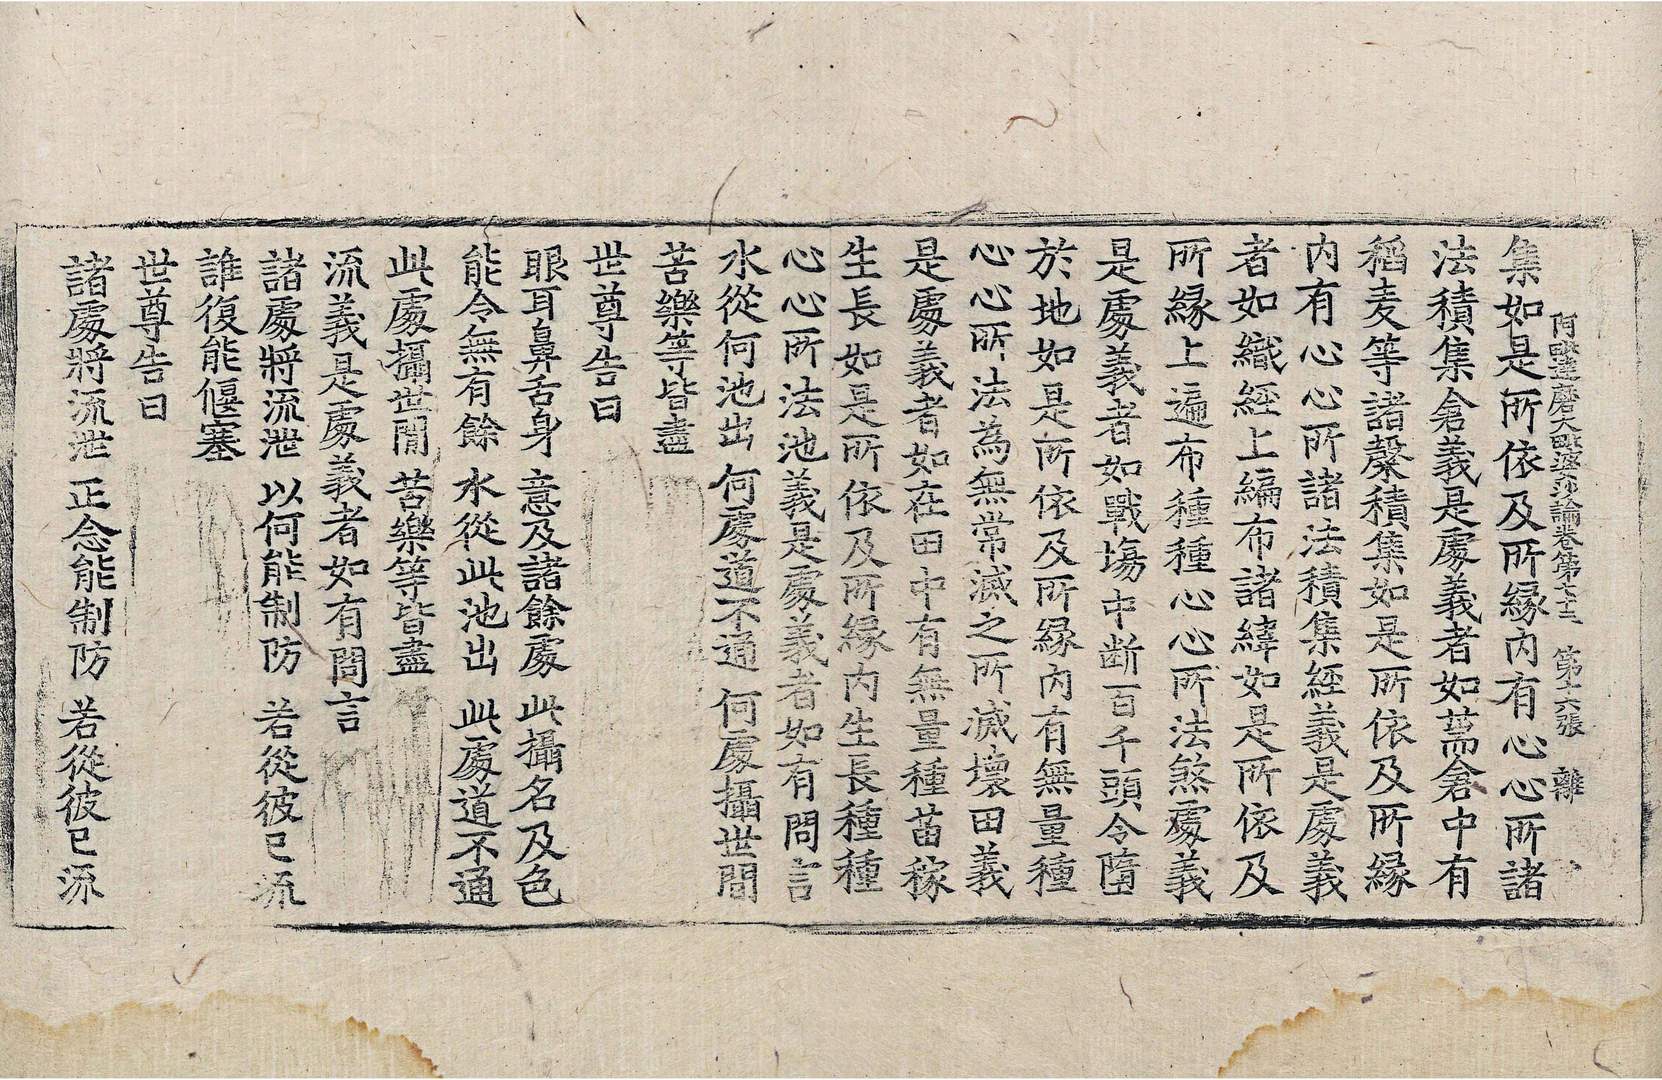 阿毗達磨大毗婆沙論卷第七十三 第十六張 離
集如是所依及所緣內有心心所諸
法積集倉義是處義者如篅倉中有
稻麦等諸槃積集如是所依及所緣
內有心心所諸法積集經義是處義
者如織經上編布諸緯如是所依及
所緣上遍布種種心心所法煞處義
是處義者如戰場中断百千頭令墮
於地如是所依及所緣內有無量種
心心所法為無常滅之所滅壞田義
是處義者如在田中有無量種苗稼
生長如是所依及所緣內生長種種
心心所法池義是處義者如有問言
水從何池出 何處道不通 何處攝世間
苦樂等皆盡
世尊告曰
眼耳鼻舌身 意及諸餘處 此攝名及色
能令無有餘 水從此池出 此處道不通
此處攝世間 苦樂等皆盡
流義是處義者如有問言
諸處將流泄 以何能制防 若從彼已流
誰復能偃塞
世尊告曰
諸處將流泄 正念能制防 若從彼已流